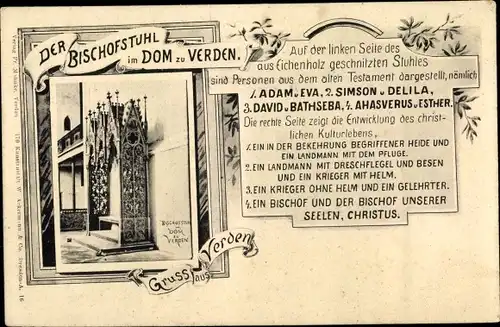 DER BISCHOFSTUHL
im DOM zu VERDEN.
Auf der linken Seite des
aus Eichenholz geschnitzten Stuhles
sind Personen aus dem alten Testament dargestellt, nämlich
1. ADAM u. EVA, 2. SIMSON u. DELILA,
3. DAVID u. BATHSEBA, 4. AHASVERUS u. ESTHER.
Die rechte Seite zeigt die Entwicklung des christ-
lichen Kulturlebens,
1. EIN IN DER BEKEHRUNG BEGRIFFENER HEIDE UND
EIN LANDMANN MIT DEM PFLUGE.
2. EIN LANDMANN MIT DRESCHFLEGEL UND BESEN
UND EIN KRIEGER MIT HELM.
3. EIN KRIEGER OHNE HELM UND EIN GELEHRTER.
4. EIN BISCHOF UND DER BISCHOF UNSERER
SEELEN, CHRISTUS.
BISCHOFSTUHL
DOM
ZU
VERDEN
Gruss aus Verden